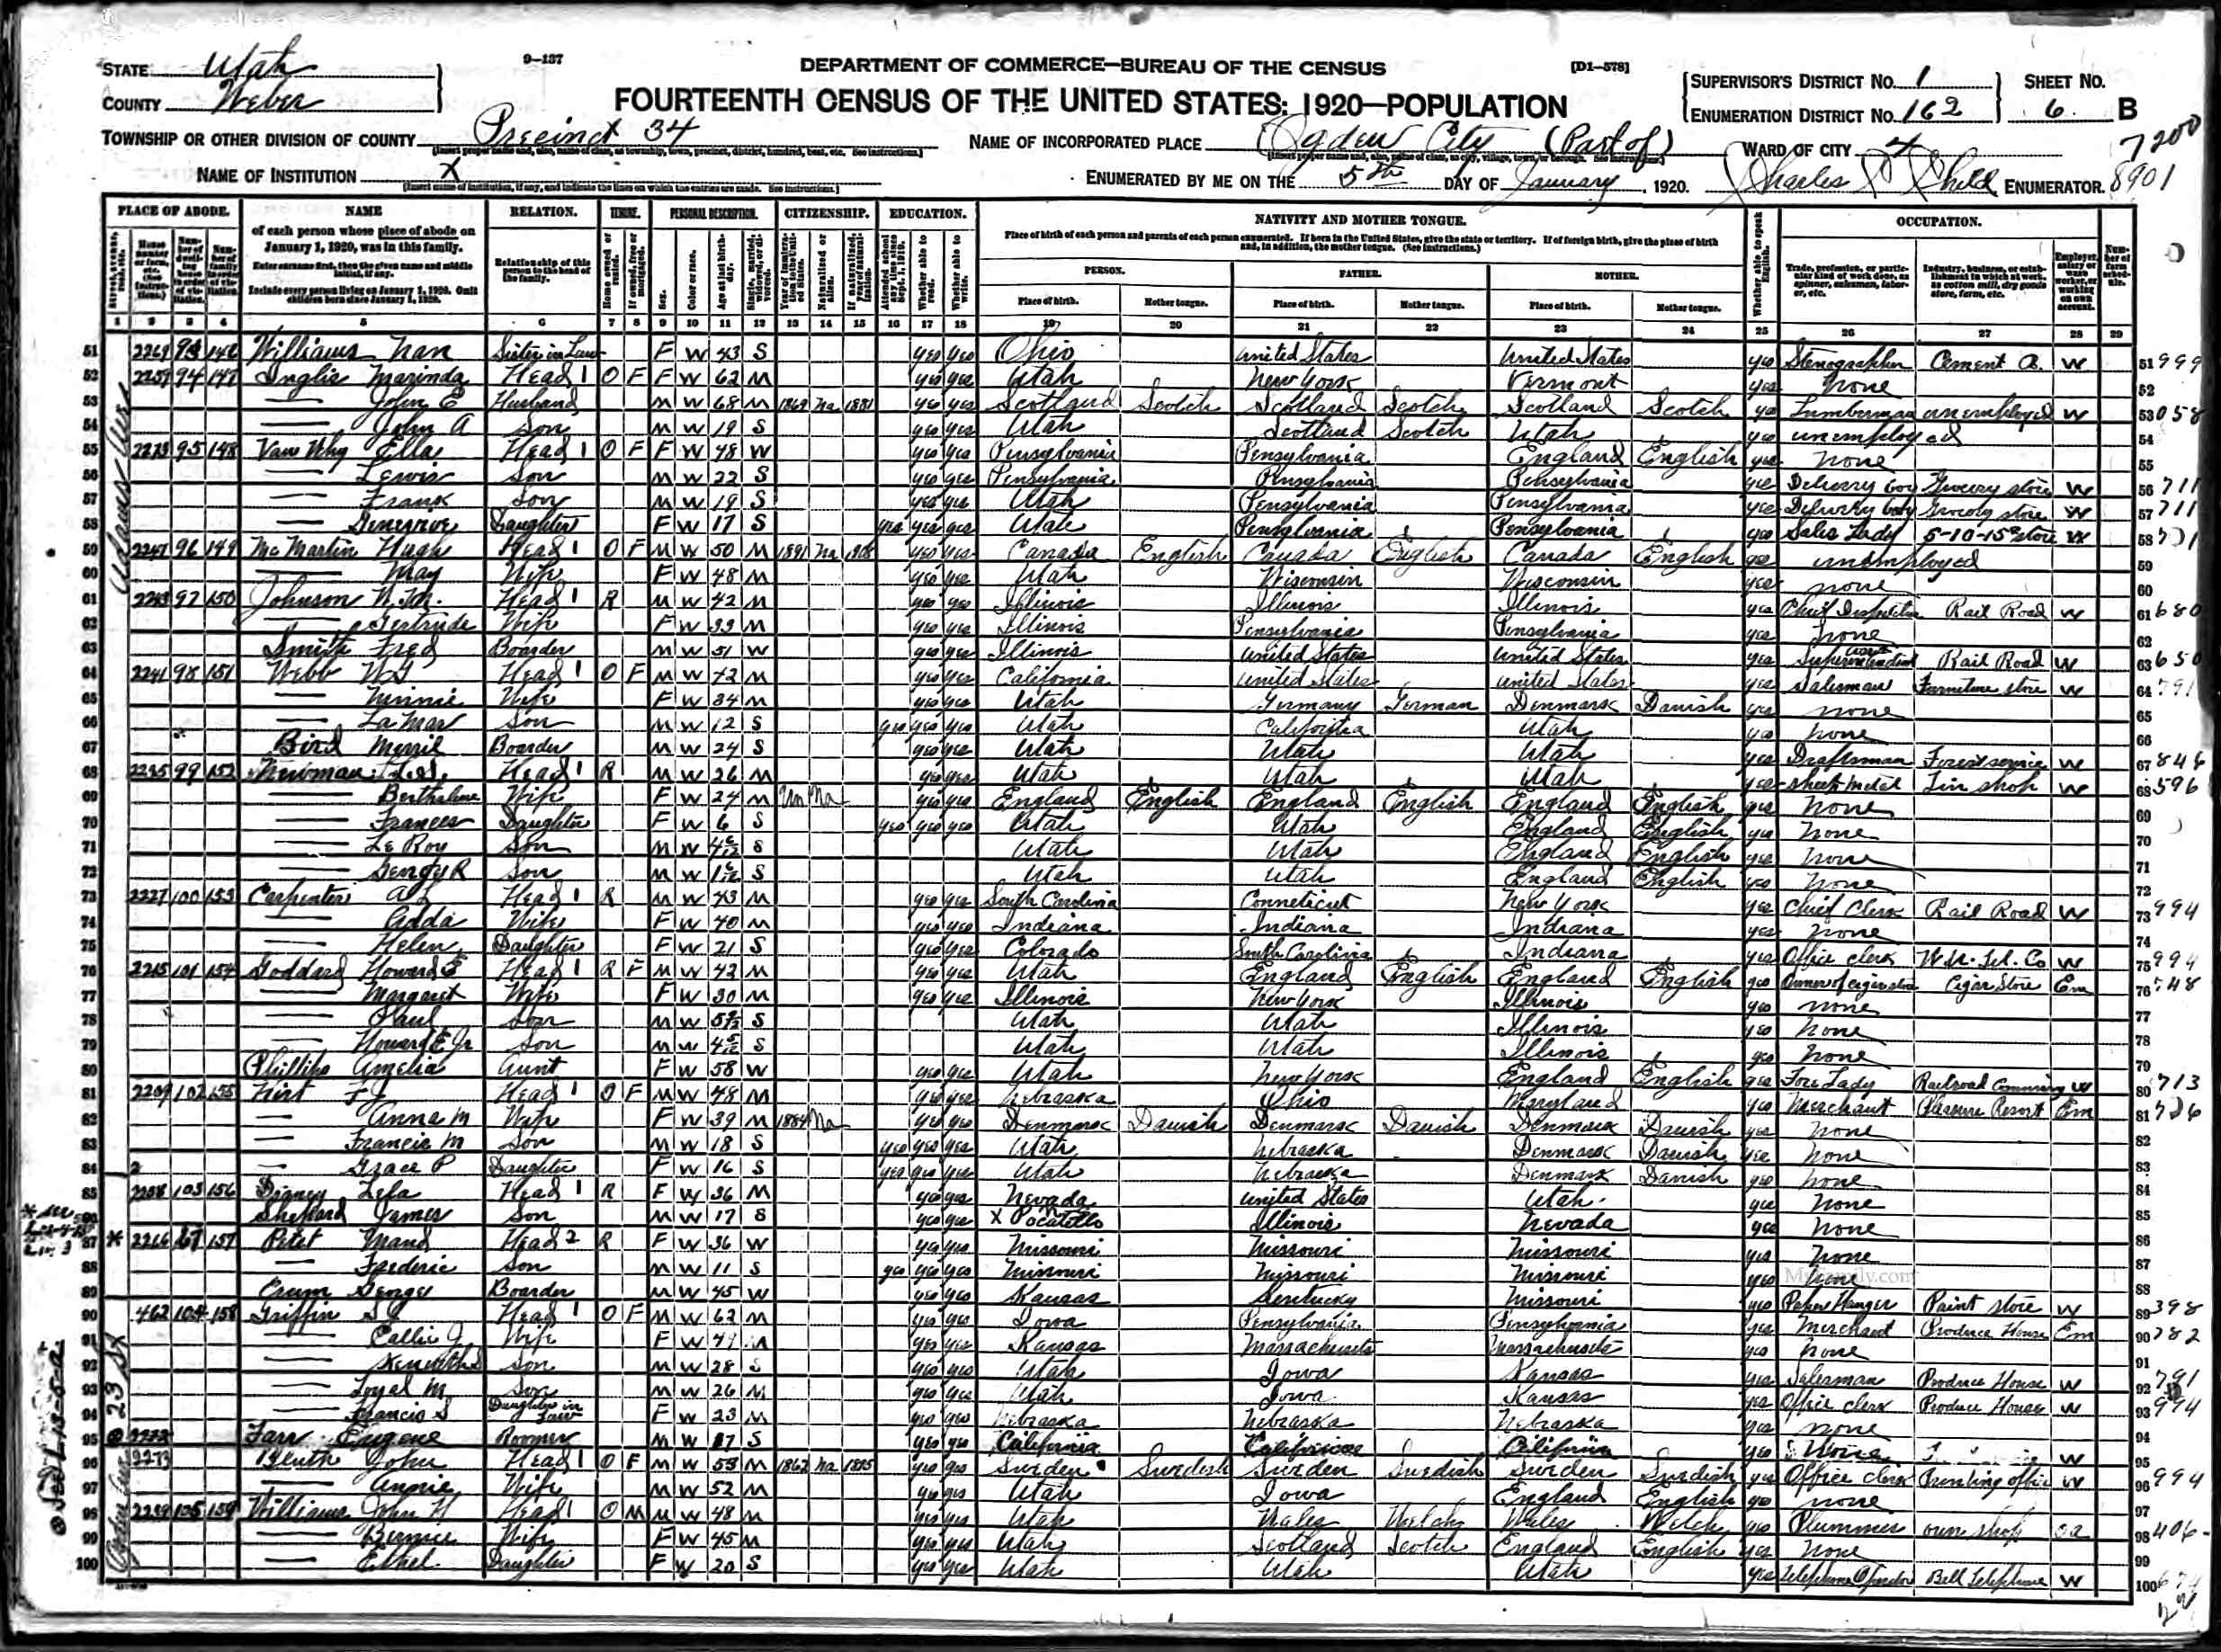 STATE Utah
COUNTY Weber
9—137
DEPARTMENT OF COMMERCE—BUREAU OF THE CENSUS
[D1—578]
FOURTEENTH CENSUS OF THE UNITED STATES: 1920—POPULATION
SUPERVISOR'S DISTRICT No. 1
ENUMERATION DISTRICT No. 162
SHEET No. 6 B
7200
8901
TOWNSHIP OR OTHER DIVISION OF COUNTY Precinct 34
NAME OF INCORPORATED PLACE Ogden City (Part of)
WARD OF CITY 4
NAME OF INSTITUTION X
ENUMERATED BY ME ON THE 5th DAY OF January, 1920. Charles Child ENUMERATOR.
PLACE OF ABODE. NAME RELATION. TENURE. PERSONAL DESCRIPTION. CITIZENSHIP. EDUCATION. NATIVITY AND MOTHER TONGUE. OCCUPATION.
of each person whose place of abode on January 1, 1920, was in this family.
Enter surname first, then the given name and middle initial, if any.
Include every person living on January 1, 1920. Omit children born since January 1, 1920.
Relationship of this person to the head of the family.
Place of birth of each person and parents of each person enumerated. If born in the United States, give the state or territory. If of foreign birth, give the place of birth and, in addition, the mother tongue. (See Instructions.)
PERSON. FATHER. MOTHER.
Place of birth. Mother tongue. Place of birth. Mother tongue. Place of birth. Mother tongue.
1 2 3 4 5 6 7 8 9 10 11 12 13 14 15 16 17 18 19 20 21 22 23 24 25 26 27 28 29
51 Williams Nan Sister in Law F W 43 S yes yes Ohio United States United States yes Stenographer Cement W 999
52 94 147 Inglis Marinda Head 1 O F F W 62 M yes yes Utah New York Vermont yes none
53 John E Husband M W 68 M 1869 Na 1881 yes yes Scotland Scotch Scotland Scotch Scotland Scotch yes Lumberman unemployed W 058
54 John A Son M W 19 S yes yes Utah Scotland Scotch Utah yes unemployed
55 95 148 Van Why Ella Head 1 O F F W 48 W yes yes Pensylvania Pensylvania England English yes none
56 Lewis Son M W 22 S yes yes Pensylvania Pensylvania Pensylvania yes Delivery boy Grocery store W 711
57 Frank Son M W 19 S yes yes Utah Pensylvania Pensylvania yes Delivery boy Grocery store W 711
58 Genevieve Daughter F W 17 S yes yes yes Utah Pensylvania Pensylvania yes Sales Lady 5-10-15c store W
59 2247 96 149 McMartin Hugh Head 1 O F M W 50 M 1891 Na yes yes Canada English Canada English Canada English yes unemployed
60 May Wife F W 48 M yes yes Utah Wisconsin Wisconsin yes none
61 2243 97 150 Johnson N.M. Head 1 R M W 42 M yes yes Illinois Illinois Illinois yes Chief Dispatcher Rail Road W 680
62 Gertrude Wife F W 39 M yes yes Illinois Pensylvania Pensylvania yes none
63 Smith Fred Boarder M W 51 W yes yes Illinois United States United States yes Superintendent Rail Road W 650
64 2241 98 151 Webb Head 1 O F M W 42 M yes yes California United States United States yes Salesman Furniture store W 791
65 Minnie Wife F W 34 M yes yes Utah Germany German Denmark Danish yes none
66 La Mar Son M W 12 S yes yes yes Utah California Utah yes none
67 Bird Merril Boarder M W 24 S yes yes Utah Utah Utah yes Draftsman Forest service W
68 2235 99 152 Newman Head 1 R M W 26 M yes yes Utah Utah Utah yes sheet metal Tin shop W 596
69 Wife F W 24 M Un Na yes yes England English England English England English yes none
70 Frances Daughter F W 6 S yes yes yes Utah Utah England English yes none
71 Le Roy Son M W S Utah Utah England English yes none
72 George R Son M W S Utah Utah England English yes none
73 2227 100 153 Carpenter Head 1 R M W 43 M yes yes South Carolina Conneticut New York yes Chief Clerk Rail Road W 994
74 Adda Wife F W 40 M yes yes Indiana Indiana Indiana yes none
75 Helen Daughter F W 21 S yes yes Colorado South Carolina Indiana yes Office clerk W.U. Tel. Co W 994
76 2215 101 154 Goddard Howard E Head 1 R F M W 42 M yes yes Utah England English England English yes Owner of cigar store Cigar Store Em
77 Margaret Wife F W 30 M yes yes Illinois New York Illinois yes none
78 Paul Son M W S Utah Utah Illinois yes none
79 Howard E Jr Son M W S Utah Utah Illinois yes none
80 Phillips Amelia Aunt F W 58 W yes yes Utah New York England English yes Fore Lady Railroad W 713
81 2209 102 155 Head 1 O F M W 48 M yes yes Nebraska Ohio Maryland yes Merchant Pleasure Resort Em
82 Anna M Wife F W 39 M 1884 Na yes yes Denmark Danish Denmark Danish Denmark Danish yes none
83 Francis M Son M W 18 S yes yes yes Utah Nebraska Denmark Danish yes none
84 Grace P Daughter F W 16 S yes yes yes Utah Nebraska Denmark Danish yes none
85 103 156 Head 1 R F W 36 M yes yes Nevada United States Utah yes none
86 Sheppard James Son M W 17 S yes yes X Pocatello Illinois Nevada yes none
87 * 2266 67 157 Petet Maud Head 2 R F W 36 W yes yes Missouri Missouri Missouri yes none
88 Frederic Son M W 11 S yes yes yes Missouri Missouri Missouri yes none
89 Crum George Boarder M W 45 W yes yes Kansas Kentucky Missouri yes Paper Hanger Paint store W 398
90 462 104 158 Griffin Head 1 O F M W 62 M yes yes Iowa Pensylvania Pensylvania yes Merchant Produce House Em 782
91 Callie J Wife F W 49 M yes yes Kansas Massachusets Massachusets yes none
92 Kenneth Son M W 28 S yes yes Utah Iowa Kansas yes Salesman Produce House W 791
93 Loyal M Son M W 26 M yes yes Utah Iowa Kansas yes Office clerk Produce House W 994
94 Francis S Daughter in Law F W 23 M yes yes Nebraska Nebraska Nebraska yes none
95 Farr Eugene Roomer M W S yes yes California California yes W
96 2273 John Head 1 O F M W 53 M 1862 Na yes yes Sweden Swedish Sweden Swedish Sweden Swedish yes Office clerk Printing office W 994
97 Annie Wife M W 52 M yes yes Utah Iowa England English yes none
98 105 159 Williams John H Head 1 O M M W 48 M yes yes Utah Wales Welch Wales Welch yes Plummer own shop oa 406
99 Bernice Wife F W 45 M yes yes Utah Scotland Scotch England English yes none
100 Ethel Daughter F W 20 S yes yes Utah Utah Utah yes Telephone Operator Bell Telephone W
Adams Ave
23 St
MyFamily.com